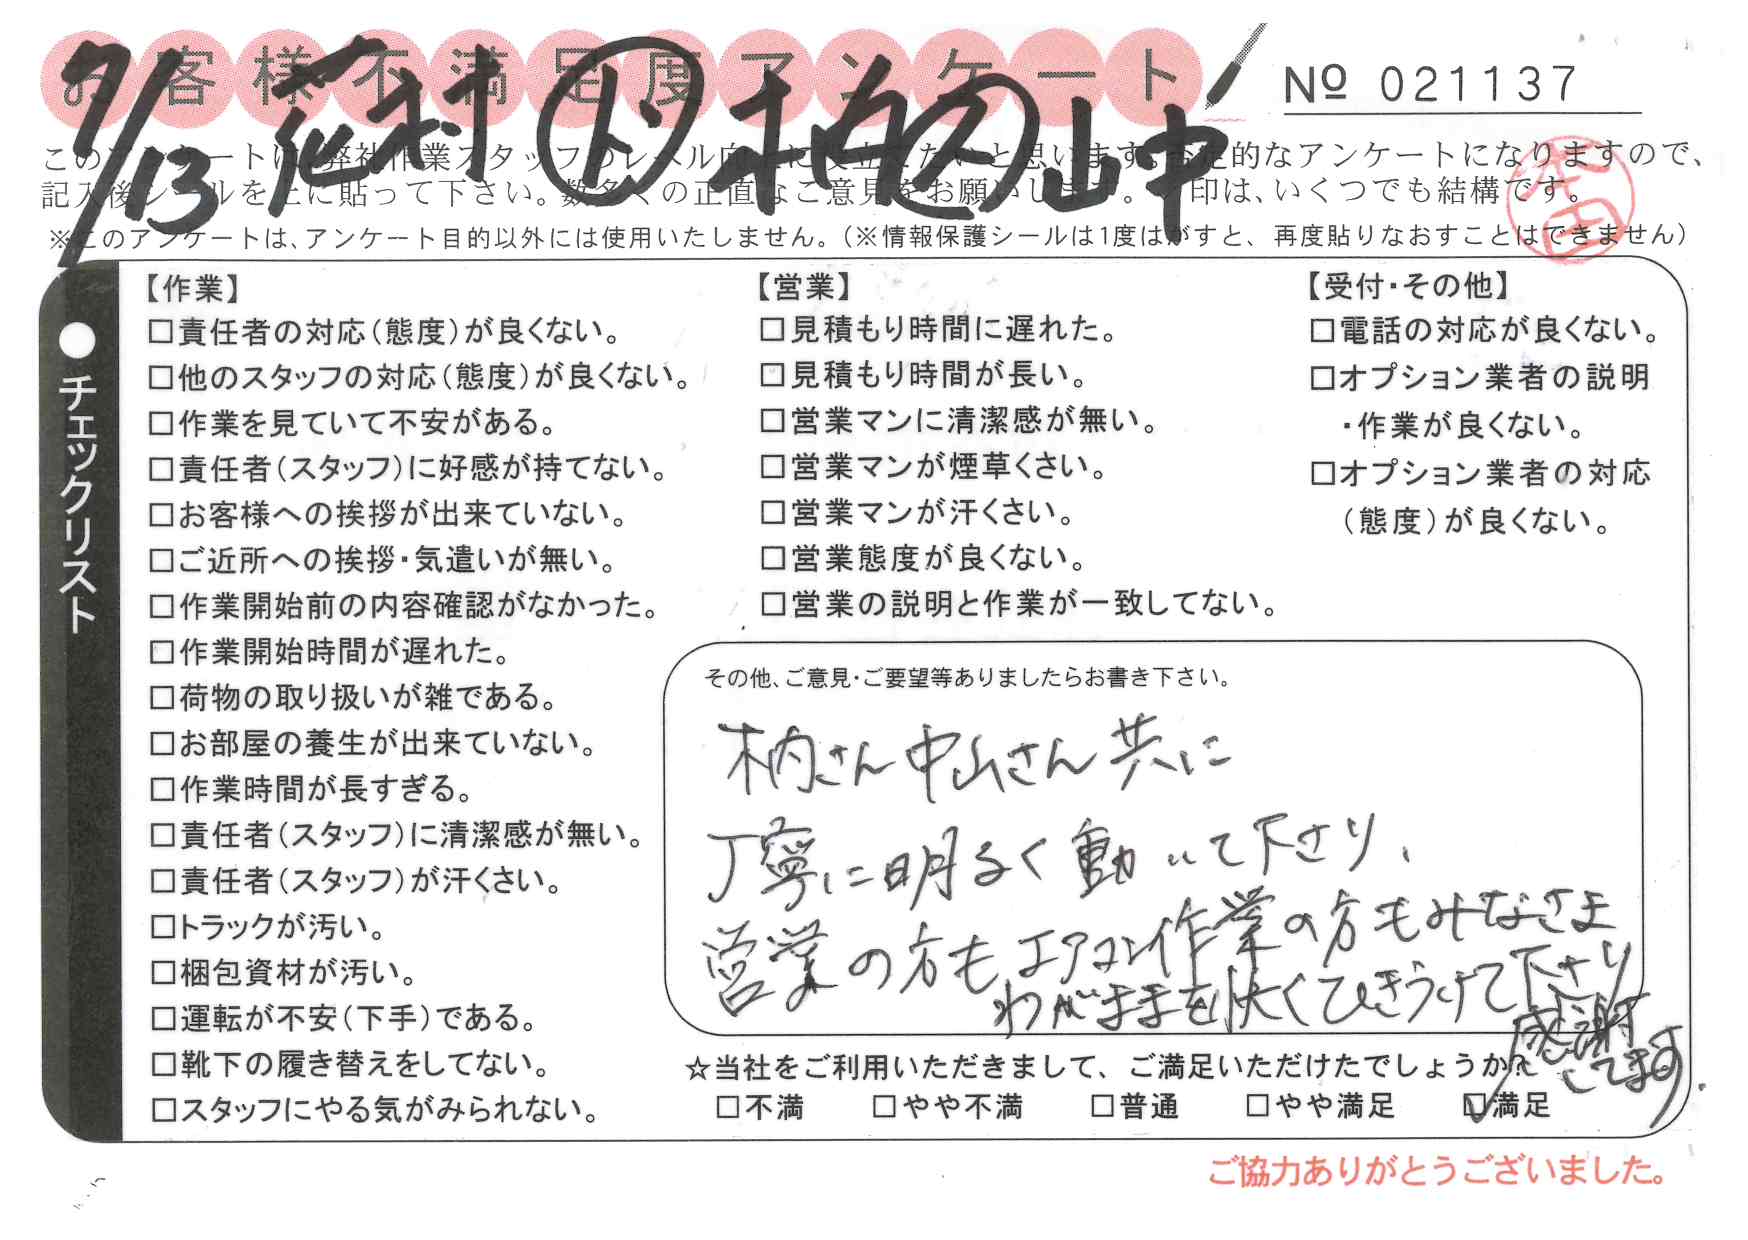 お客様不満足度アンケート
№ 021137
7/13 志村 ト 柄内 山中
このアンケートは、弊社作業スタッフのレベル向上に役立てたいと思います。否定的なアンケートになりますので、
記入後シールを上に貼って下さい。数多くの正直なご意見をお願いします。✓印は、いくつでも結構です。
※このアンケートは、アンケート目的以外には使用いたしません。(※情報保護シールは1度はがすと、再度貼りなおすことはできません)
本田
●チェックリスト
【作業】
□責任者の対応(態度)が良くない。
□他のスタッフの対応(態度)が良くない。
□作業を見ていて不安がある。
□責任者(スタッフ)に好感が持てない。
□お客様への挨拶が出来ていない。
□ご近所への挨拶・気遣いが無い。
□作業開始前の内容確認がなかった。
□作業開始時間が遅れた。
□荷物の取り扱いが雑である。
□お部屋の養生が出来ていない。
□作業時間が長すぎる。
□責任者(スタッフ)に清潔感が無い。
□責任者(スタッフ)が汗くさい。
□トラックが汚い。
□梱包資材が汚い。
□運転が不安(下手)である。
□靴下の履き替えをしてない。
□スタッフにやる気がみられない。
【営業】
□見積もり時間に遅れた。
□見積もり時間が長い。
□営業マンに清潔感が無い。
□営業マンが煙草くさい。
□営業マンが汗くさい。
□営業態度が良くない。
□営業の説明と作業が一致してない。
【受付・その他】
□電話の対応が良くない。
□オプション業者の説明
・作業が良くない。
□オプション業者の対応
(態度)が良くない。
その他、ご意見・ご要望等ありましたらお書き下さい。
柄内さん中山さん共に
丁寧に明るく動いて下さり、
営業の方もエアコン作業の方もみなさま
わがままを快くひきうけて下さり
感謝
してます。
☆当社をご利用いただきまして、ご満足いただけたでしょうか?
□不満 □やや不満 □普通 □やや満足 ☑満足
ご協力ありがとうございました。